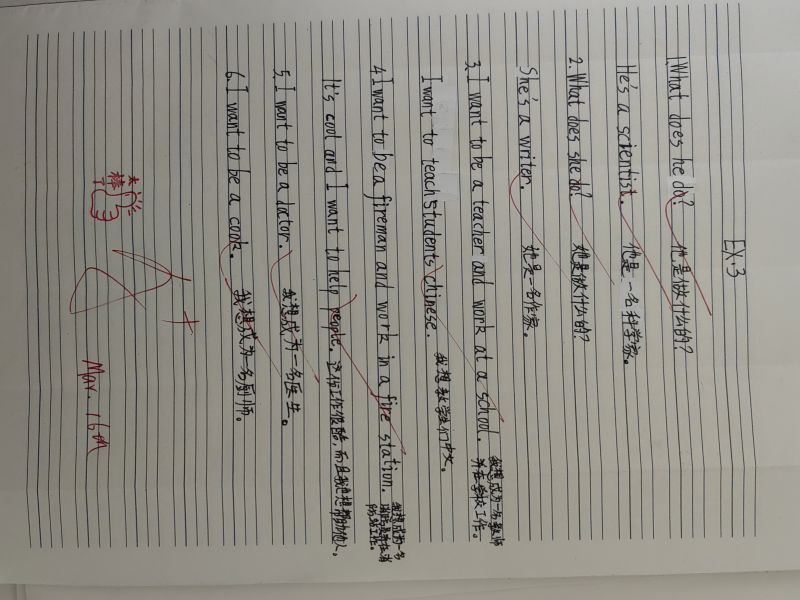 EX.3
1.What does he do? 他是做什么的?
He's a scientist. 他是一名科学家。
2.What does she do? 她是做什么的?
She's a writer. 她是一名作家。
3.I want to be a teacher and work at a school. 我想成为一名教师
并在学校工作。
I want to teach students chinese. 我想教学生们中文。
4.I want to be a fireman and work in a fire station. 我想成为一名
消防员并在消
防站工作。
It's cool and I want to help people. 这份工作很酷,而且我也想帮助他人。
5.I want to be a dator. 我想成为一名医生。
6.I want to be a cook. 我想成为一名厨师。
棒
A+
Mar. 16th